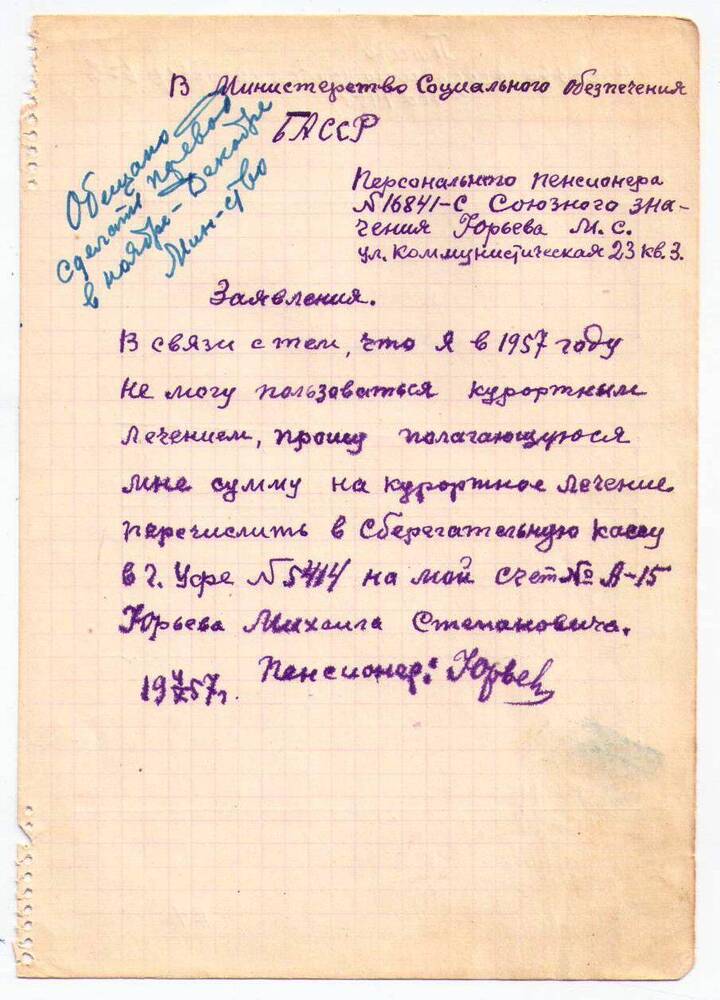 В Министерство Социального обезпечения
БАССР
Обещано
сделать перевод
в ноябре-декабре
Мин-ство
Персонального пенсионера
N16841-С Союзного зна-
чения Юрьева М.С.
ул. Коммунистическая 23 кв. 3.
Заявления.
В связи с тем, что я в 1957 году
не могу пользоваться курортным
лечением, прошу полагающуюся
мне сумму на курортное лечение
перечислить в Сберегательную кассу
в г. Уфе N5414 на мой счет № А-15
Юрьева Михаила Степановича.
Пенсионер: Юрьев